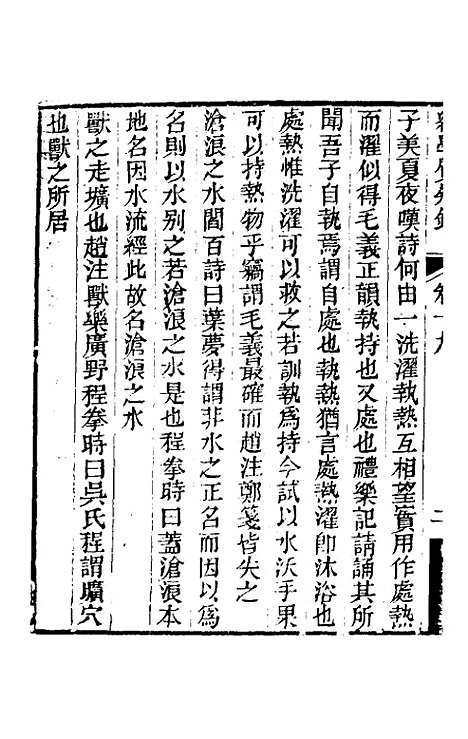 卷十九
二
子美夏夜嘆詩何由一洗濯執熱互相望實用作處熱
而濯似得毛義正韻執持也又處也禮樂記請誦其所
聞吾子自執焉謂自處也執熱猶言處熱濯卽沐浴也
處熱惟洗濯可以救之若訓執爲持今試以水沃手果
可以持熱物乎竊謂毛義最確而趙注鄭箋皆失之
滄浪之水閻百詩曰葉夢得謂非水之正名而因以爲
名則以水别之若滄浪之水是也程拳時曰蓋滄浪本
地名因水流經此故名滄浪之水
獸之走壙也趙注獸樂廣野程拳時曰吳氏程謂壙穴
也獸之所居